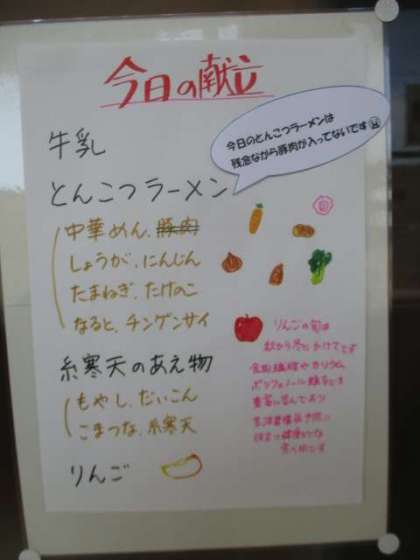 今日の献立
今日のとんこつラーメンは
残念ながら豚肉が入ってないです
牛乳
とんこつラーメン
中華めん、豚肉
しょうが、にんじん
たまねぎ、たけのこ
なると、チンゲンサイ
糸寒天のあえ物
もやし、だいこん
こまつな、糸寒天
りんご
りんごの旬は
秋から冬にかけてです
食物繊維やカリウム、
ポリフェノール類などを
豊富に含んでおり
生活習慣病予防に
食べ物です